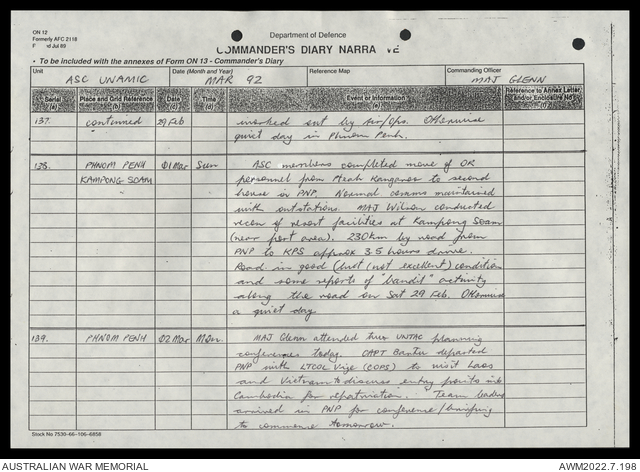 ON 12
Formerly AFC 2118
Jul 89
Department of Defence
COMMANDER'S DIARY NARRA VE
• To be included with the annexes of Form ON 13 - Commander's Diary
Unit
ASC UNAMIC
Date (Month and Year)
MAR 92
Map Reference
Commanding Officer
MAJ GLENN
Serial (a)
Place and Grid Reference (b)
Date (c)
Time (d)
Event or Information (e)
Reference to Annex Letter and/or Enclosure No (f)
137. continued 29 Feb
worked out by Air/Ops. Otherwise
quiet day in Phnom Penh.
138. PHNOM PENH 01 Mar Sun ASC members completed move of OR
KAMPONG SOAM personnel from Meah Kangaroo to second
house in PNP. Normal comms maintained
with outstations. MAJ Wilson conducted
recon of resort facilities at Kampong Soam
(near port area). 230km by road from
PNP to KPS approx 3.5 hours drive.
Road in good (but not excellent) condition
and some reports of "bandit" activity
along the road on Sat 29 Feb. Otherwise
a quiet day
139. PHNOM PENH 02 Mar Mon MAJ Glenn attended two UNTAC planning
conferences today. CAPT departed
PNP with LTCOL (COPS) to visit Laos
and Vietnam to discuss entry points into
Cambodia for repatriation. Team leaders
arrived in PNP for conference/briefing
to commence tomorrow.
Stock No 7530-66-106-6858
AUSTRALIAN WAR MEMORIAL
AWM2022.7.198